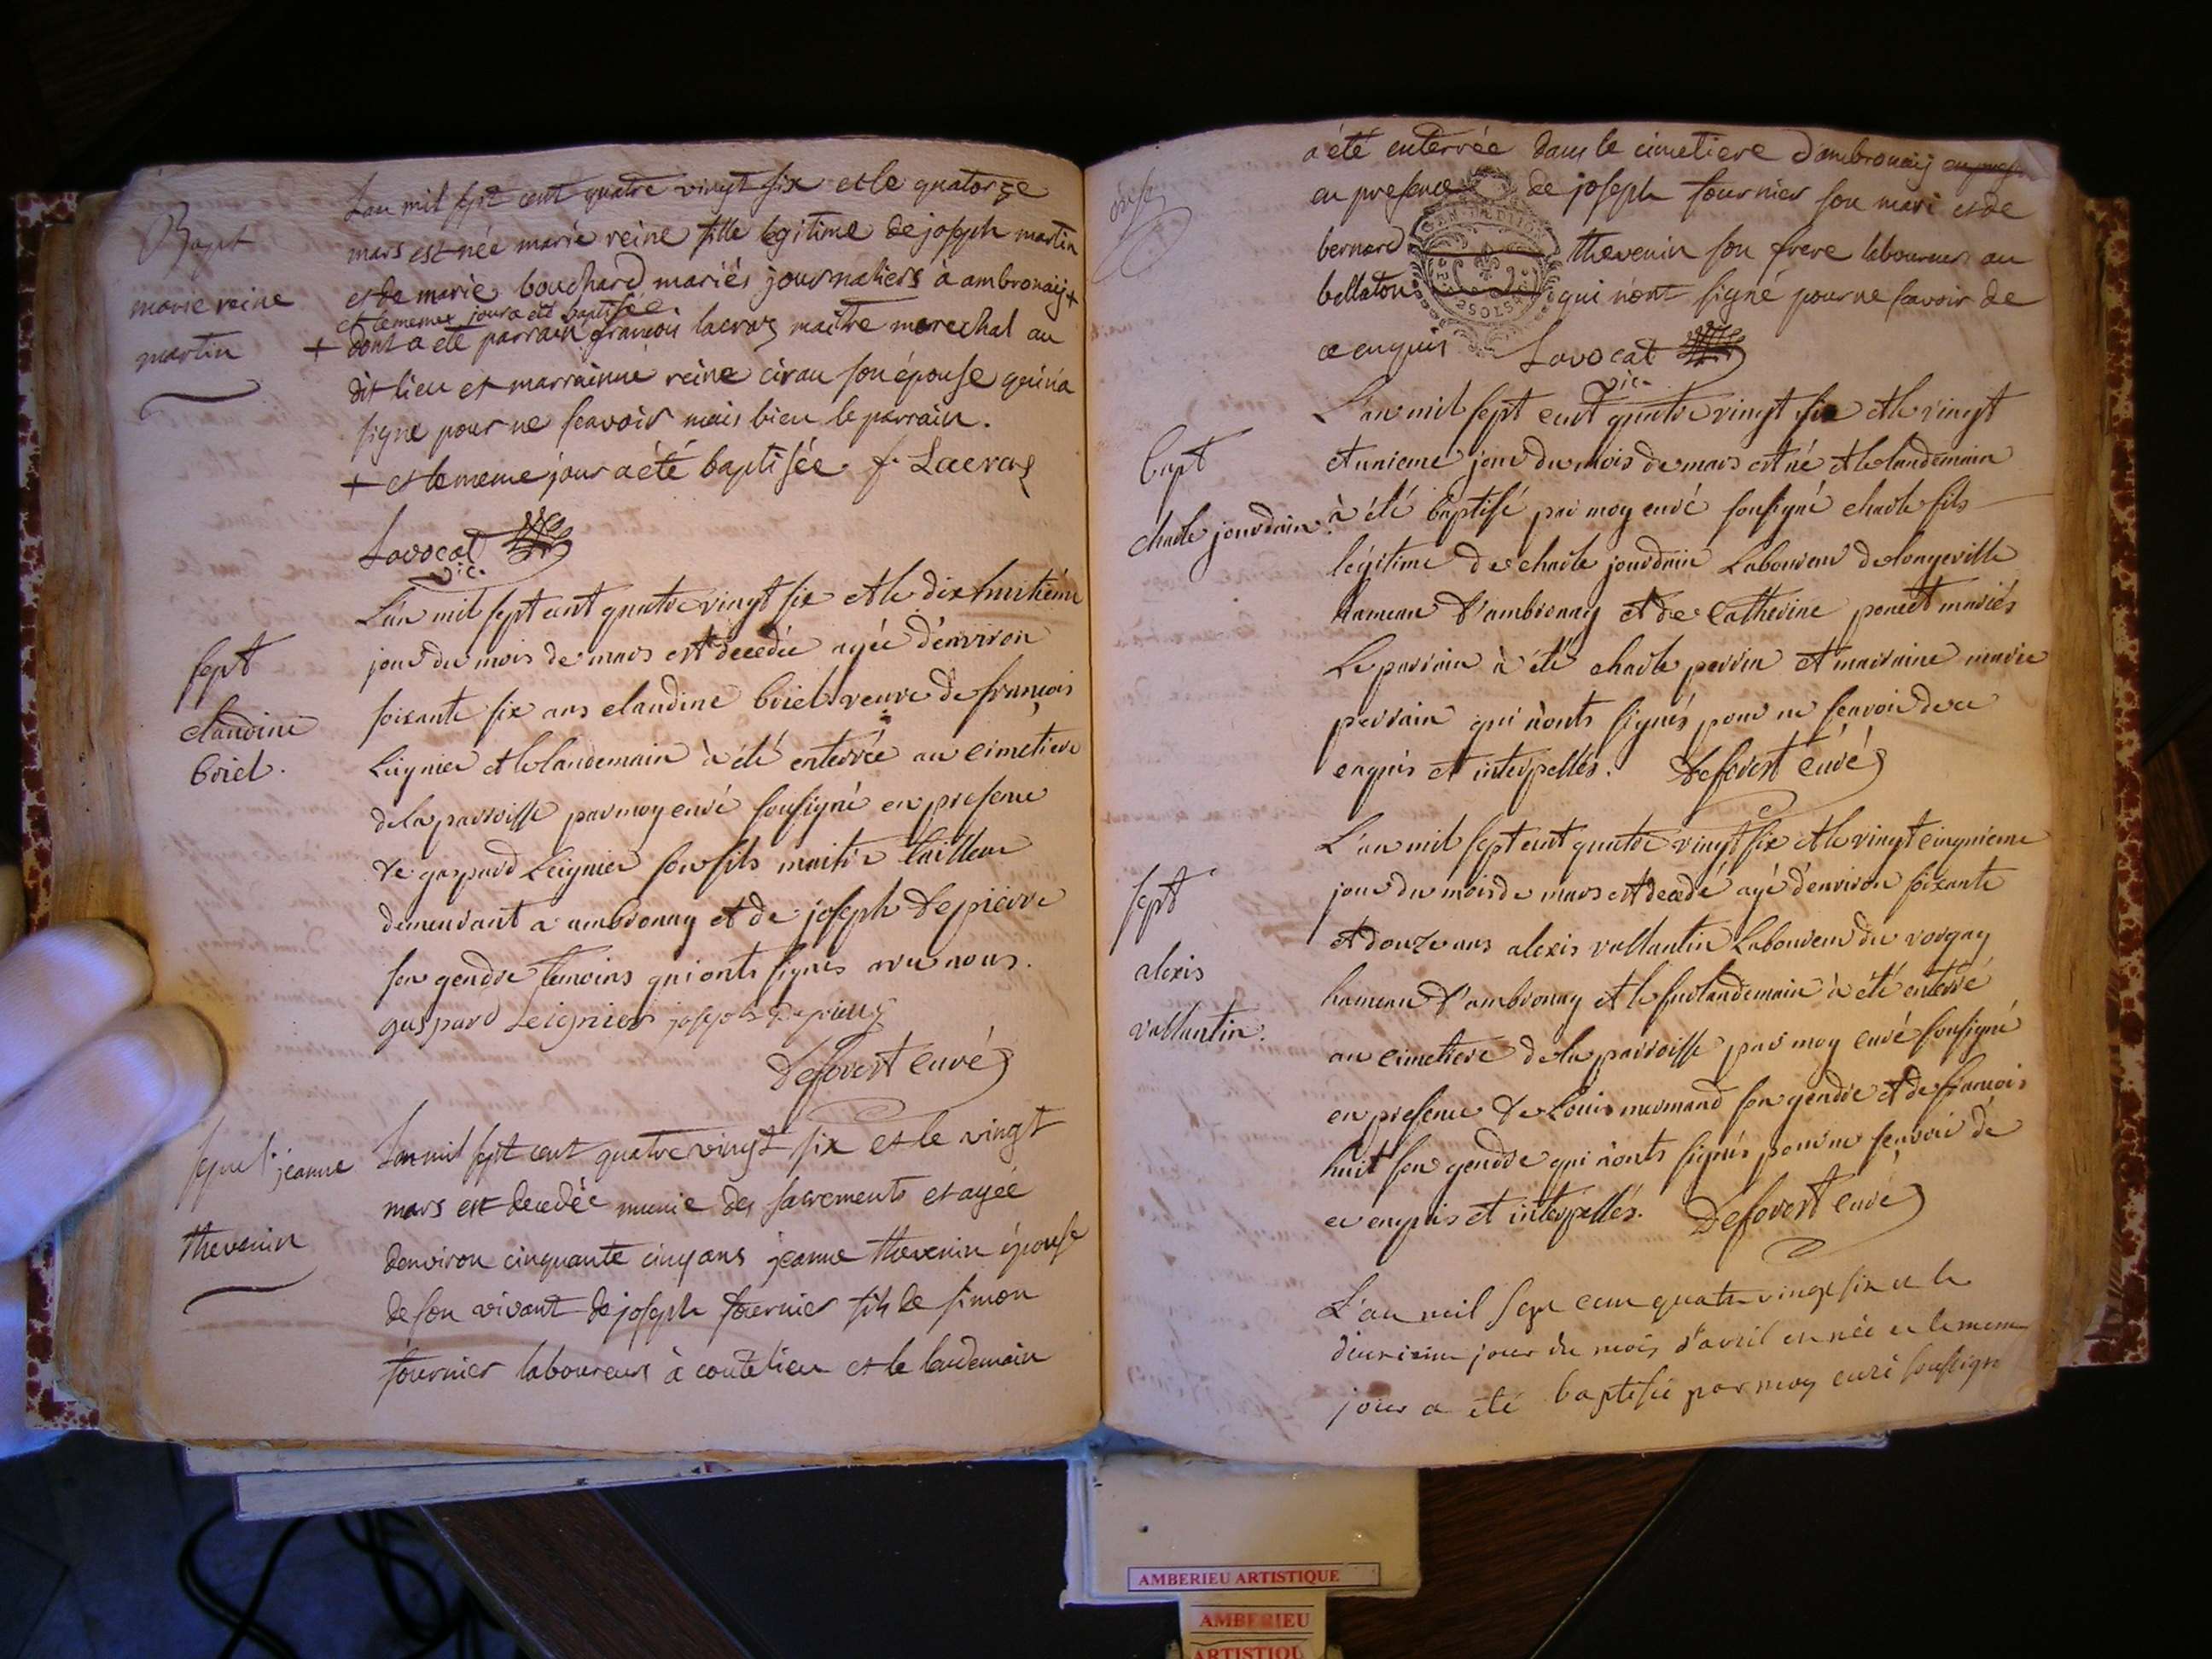 Bapt
marie reine
martin
L'an mil sept cent quatre vingt six et le quatorze
mars est née marie reine fille legitime de joseph martin
et de marie bouchard mariés journaliers à ambronaij +
et le meme jour a été baptisée
+ dont a eté parrain françois lacroz maitre marechal au
dit lieu et marrainne reine cirau son épouse qui n'a
signe pour ne scavoir mais bien le parrain.
+ et le meme jour a été baptisée f. Lacroz
Lavocat
vic.
sept
claudine
briel.
L'an mil sept cent quatre vingt six et le dix huitiéme
jour du mois de mars est decedée agée d'environ
soixante six ans claudine briel veuve de françois
Leignier et le landemain à été enterrée au cimetiere
de la parroisse par moy curé soussigné en presence
de gaspard Leignier son fils maitre tailleur
demeurant a ambronay et de joseph Depierre
son gendre temoins qui onts signés avec nous.
gaspard Leignier joseph depierre
Deforest curé
sepult. jeanne
thevenin
L'an mil sept cent quatre vingt six et le vingt
mars est decedée munie des sacrements et agée
denviron cinquante cinq ans jeanne thevenin épouse
de son vivant de joseph fournier fils de simon
fournier laboureur à coutelieu et le lendemain
a été enterrée dans le cimetiere d'ambronaij
en presence de joseph fournier son mari et de
bernard thevenin son frere laboureur au
bellaton qui n'ont signé pour ne scavoir de
ce enquis Lavocat
vic.
bapt
charle jourdain.
L'an mil sept cent quatre vingt six et le vingt
et unieme jour du mois de mars est né et le landemain
à été baptisé par moy curé soussigné charle fils
légitime de charle jourdain Laboureur de longeville
hameau d'ambronay et de Catherine poncet mariés
Le parrain à été charle perrin et marraine marie
perrain qui n'onts signés pour ne scavoir de ce
enquis et interpellés. Deforest curé
sept
alexis
vallantin.
L'an mil sept cent quatre vingt six et le vingt cinquieme
jour du mois de mars est decedé agé d'environ soixante
et douze ans alexis vallantin Laboureur du vorgay
hameau d'ambronay et le surlandemain à été enterré
au cimetiere de la parroisse par moy curé soussigné
en presence de Louis mermand son gendre et de françois
huit son gendre qui n'onts signés pour ne scavoir de
ce enquis et interpellés. Deforest curé
L'an mil sept cent quatre vingt six et le
deuxieme jour du mois d'avril est née et le meme
jour a été baptisée par moy curé soussigné
AMBERIEU ARTISTIQUE
AMBERIEU
ARTISTIQUE